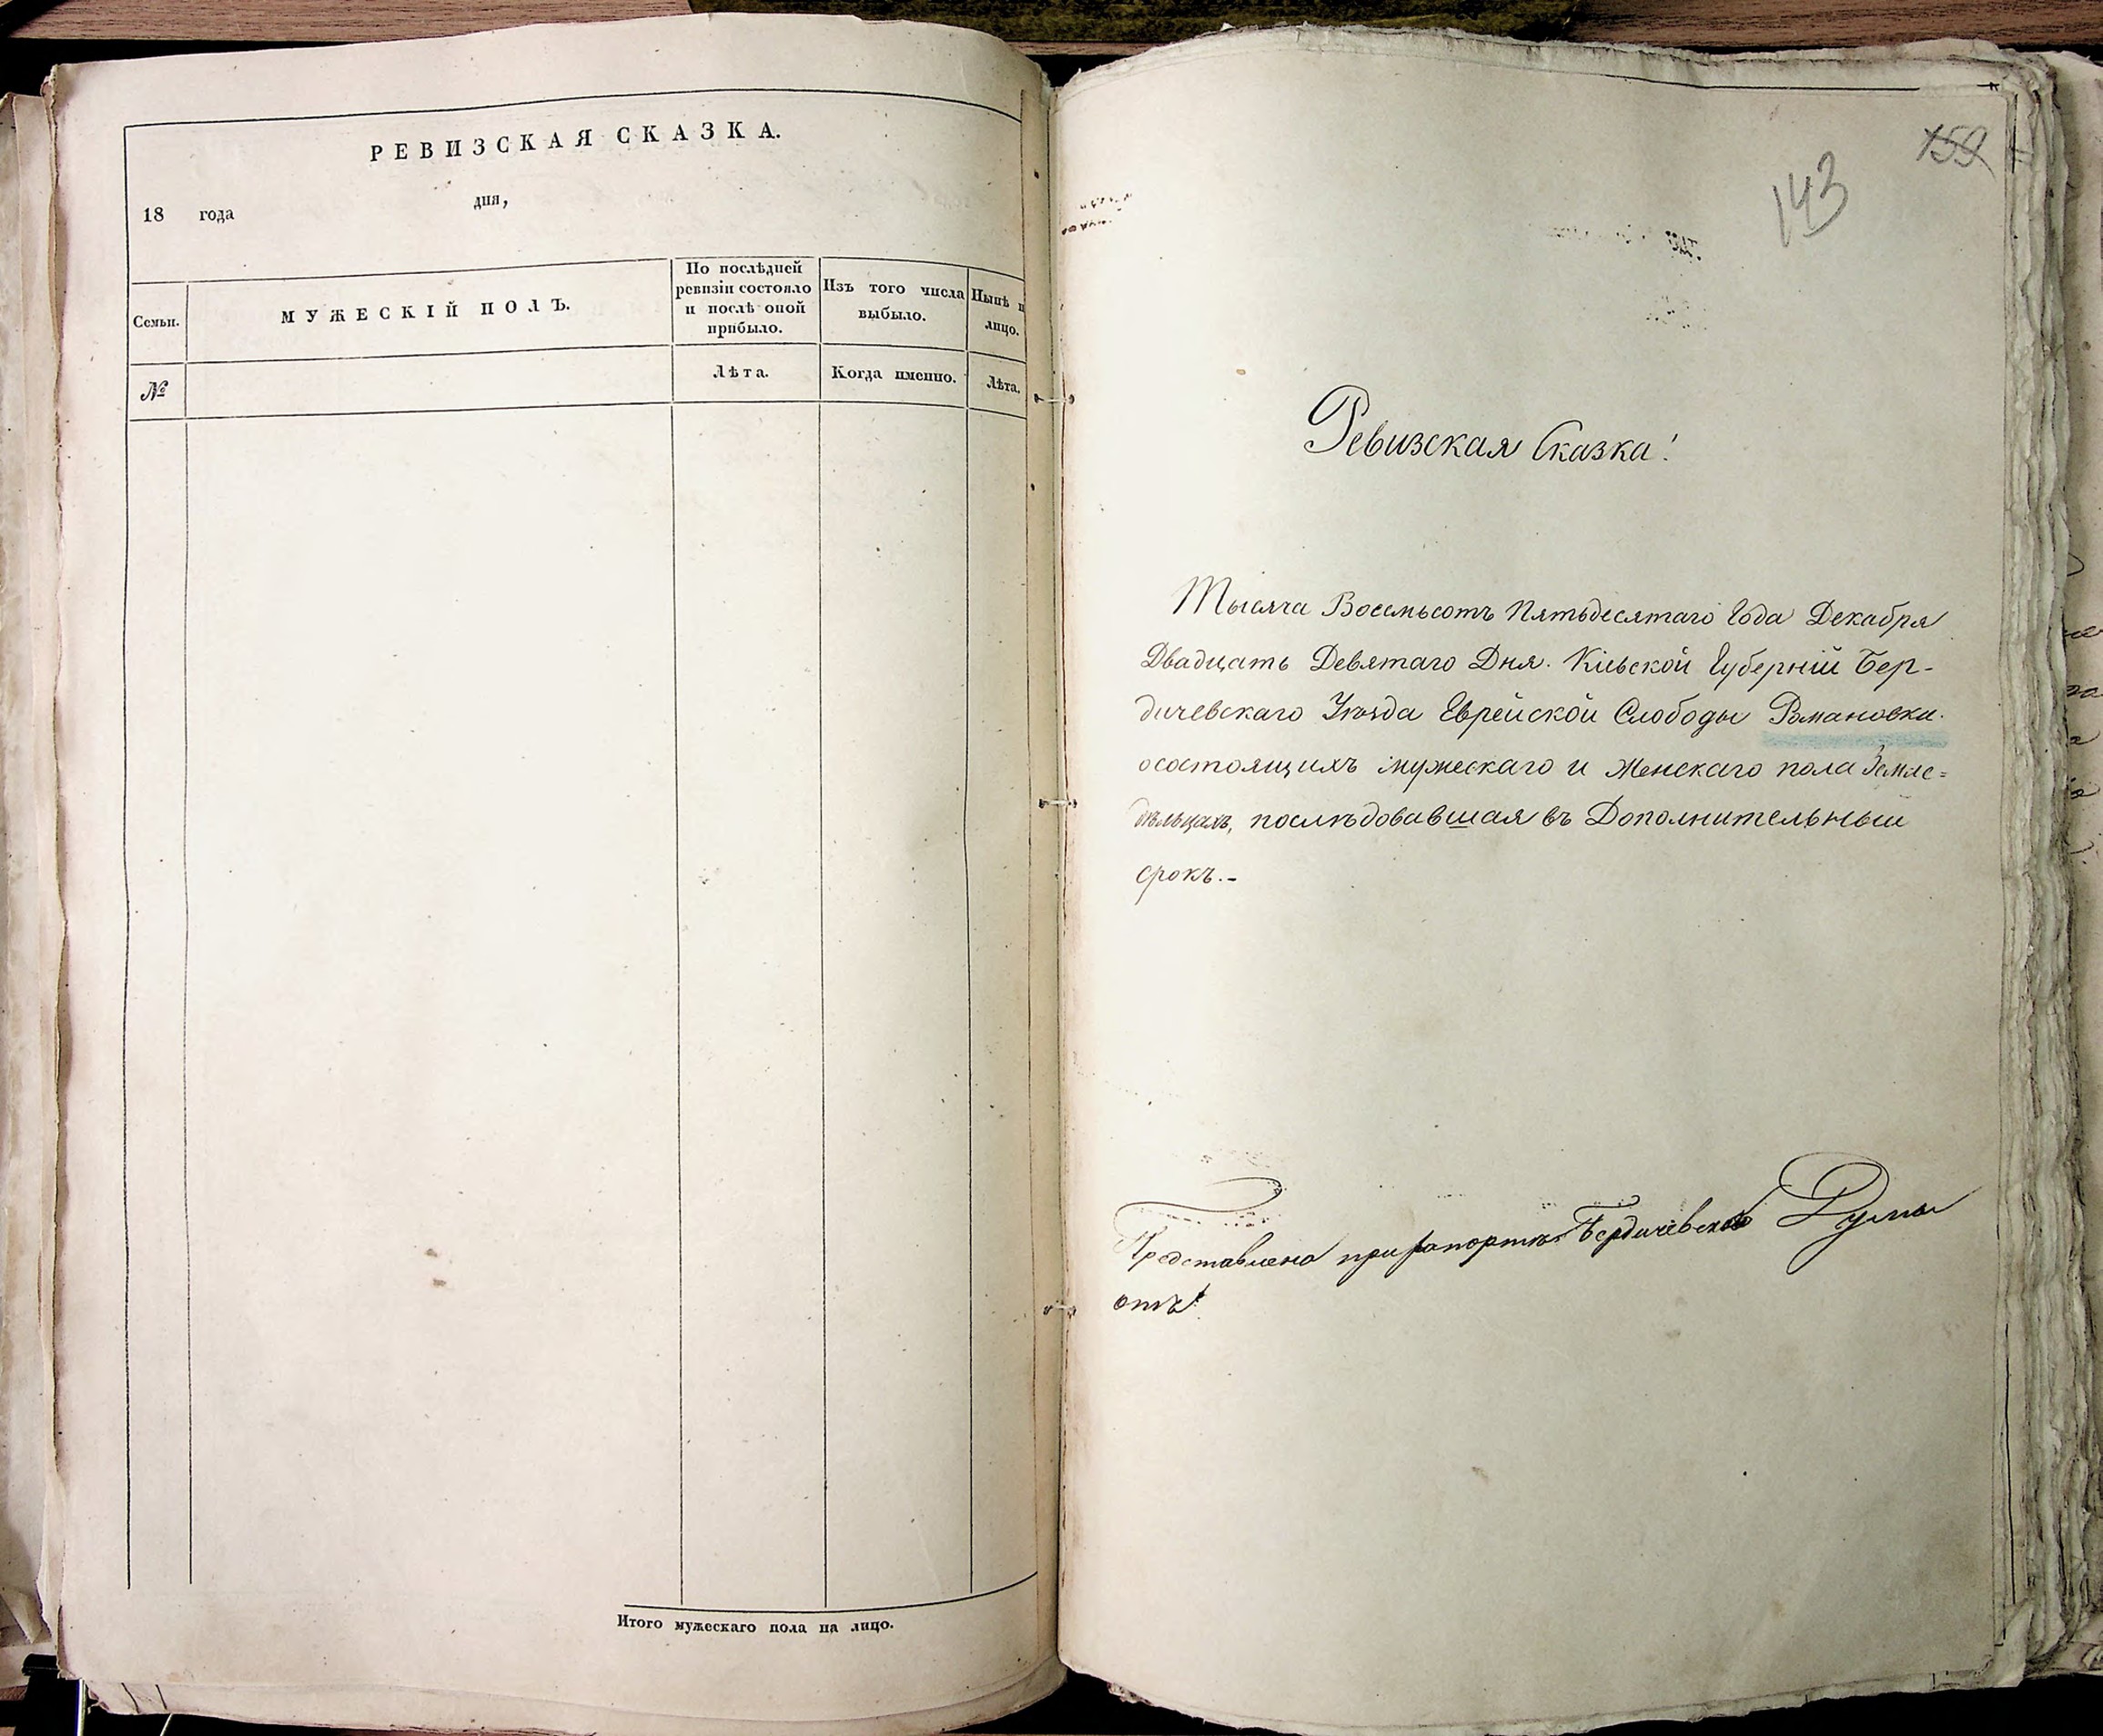 РЕВИЗСКАЯ СКАЗКА.
18 года дня,
Семьи.
МУЖЕСКІЙ ПОЛЪ.
По послѣдней
ревизіи состояло
и послѣ оной
прибыло.
Изъ того числа
выбыло.
Нынѣ н
лицо.
№
Лѣта.
Когда именно.
Лѣта.
Итого мужескаго пола на лицо.
159
143
Ревизская Сказка!
Тысяча Восемьсотъ Пятьдесятаго Года Декабря
Двадцать Девятаго Дня. Кіевской Губерніи Бер-
дичевскаго Уѣзда Еврейской Слободы Романовки.
осостоящихъ мужескаго и Женскаго пола Земле=
дѣльцахъ, послѣдовавшая въ Дополнительный
срокъ.-
Представлена при рапортѣ Бердичевской Думы
отъ